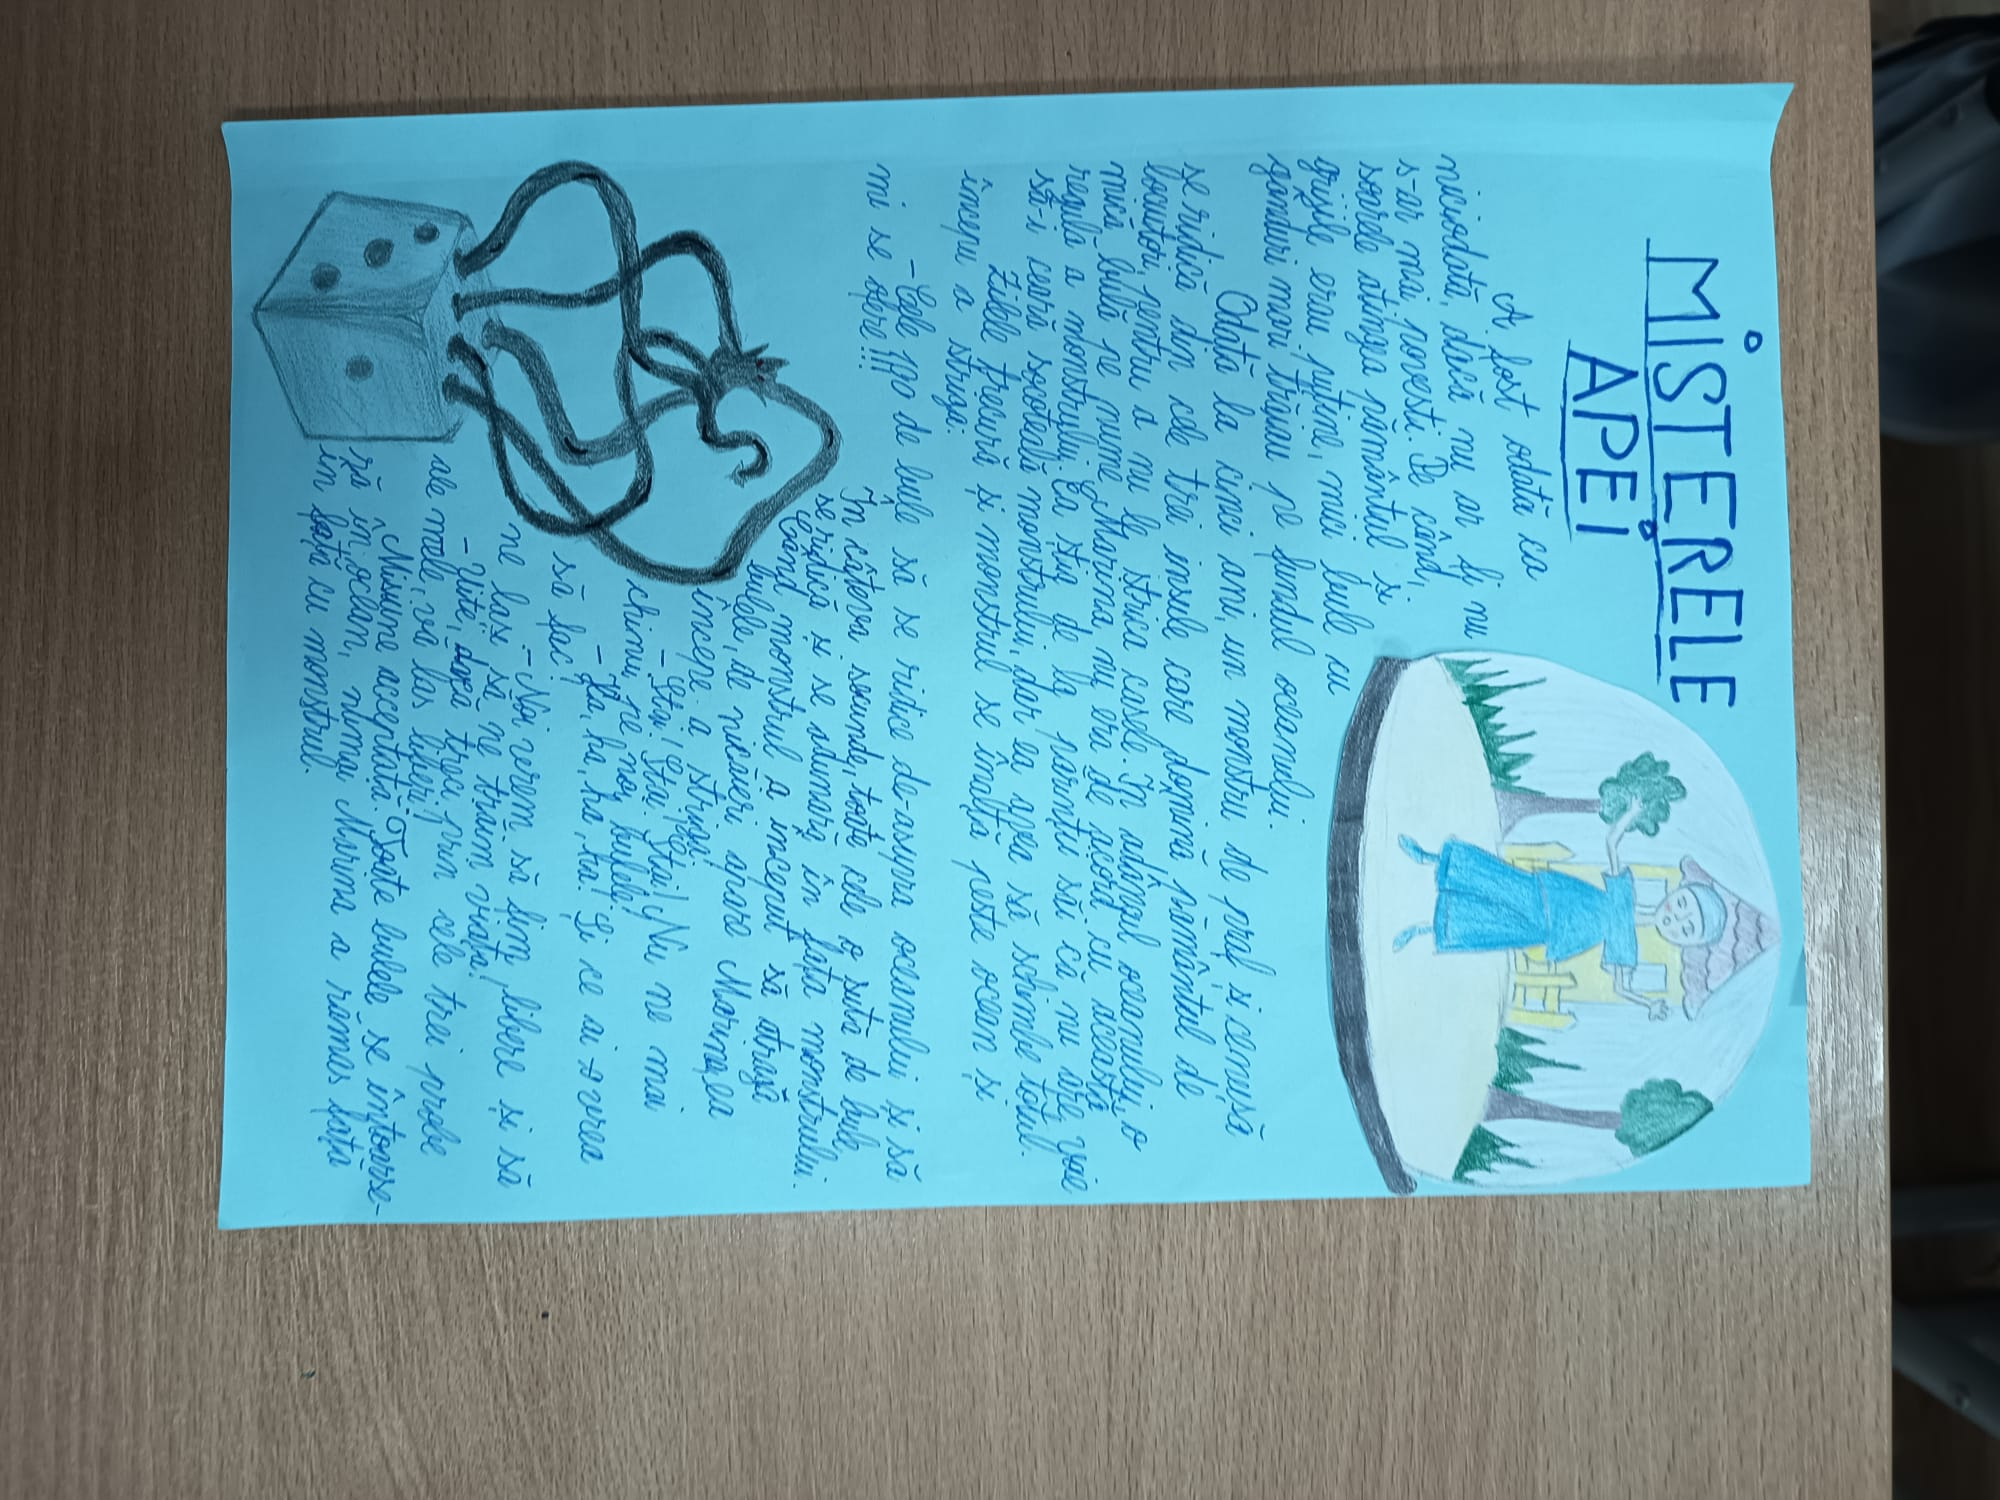 MISTERELE
APEI
A fost odată ca
niciodată, dacă nu ar fi nu
s-ar mai povesti. De când,
soarele atingea pământul și
grijile erau puține, mici bule cu
gânduri mari trăiau pe fundul oceanului.
Odată la cinci ani, un monstru de praf și cenușă
se ridică din cele trei insule care domină pământul de
locuitori, pentru a nu le strica casele. În adâncul oceanului, o
mică bulă pe nume Marina nu era de acord cu această
regulă a monstrului. Ea știa de la părinții săi că nu are voie
să-i ceară socoteală monstrului, dar ea vrea să schimbe totul.
Zilele trecură și monstrul se înalță peste ocean și
începu a striga:
- Cele 190 de bule să se ridice de-asupra oceanului și să
mi se ofere!!!
În câteva secunde, toate cele o sută de bule
se ridică și se adunară în fața monstrului.
Când monstrul a început să atragă
bulele, de nicăieri apare Marina, ea
începe a striga:
- Stai! Stai! Stai! Nu ne mai
chinui pe noi, bulele!
- Ha, ha, ha, ha! Și ce ai vrea
să fac?
- Noi vrem să fim libere și să
ne lași să ne trăim viața!
- Uite, dacă treci prin cele trei probe
ale mele, vă las liberi!
Misiune acceptată. Toate bulele se întoarse-
ră în ocean, numai Marina a rămas față
în față cu monstrul.